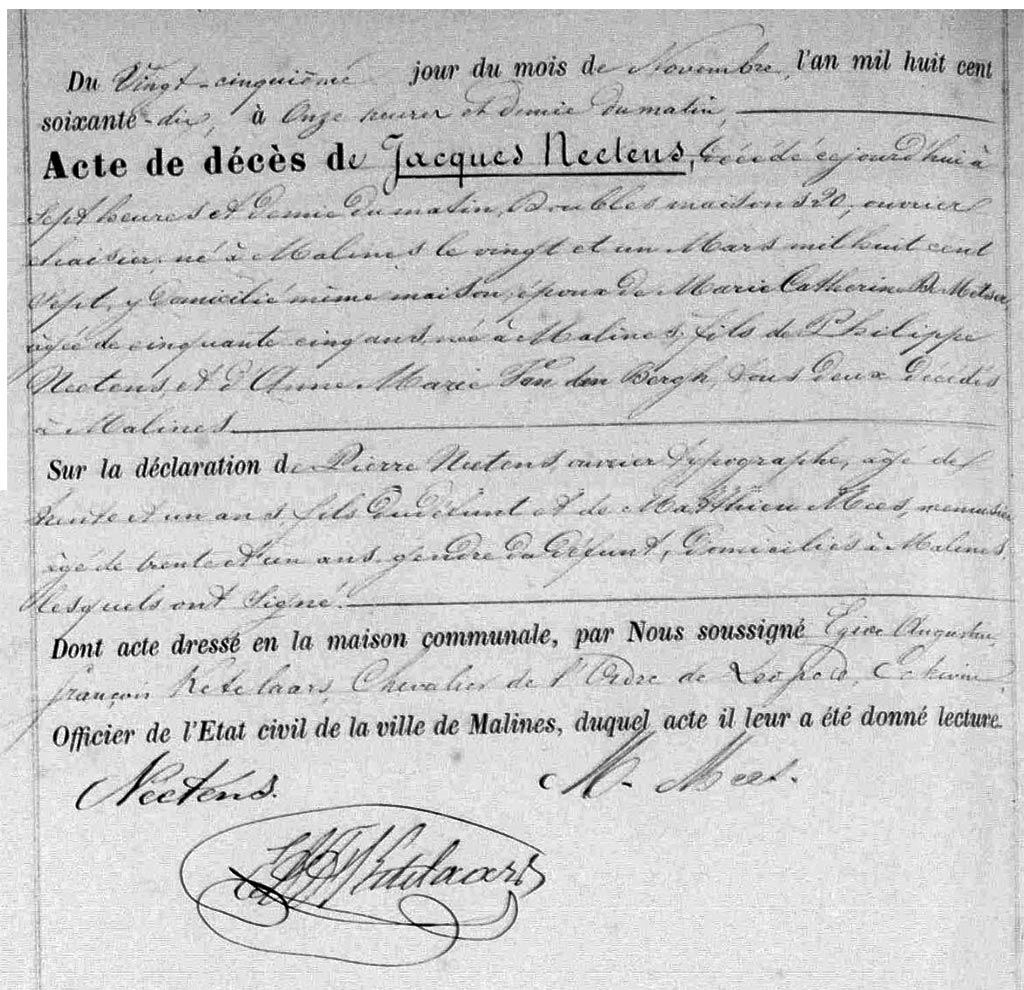 Du Vingt-cinquième jour du mois de Novembre, l'an mil huit cent
soixante-dix, à Onze heures et demie du matin,
Acte de décès de Jacques Neetens, décédé cejourd'hui à
Sept heures et demie du matin, Doubles maisons 20, ouvrier
chaisier, né à Malines le vingt et un Mars mil huit cent
Sept, y domicilié même maison, époux de Marie Catherine De Metser,
âgée de cinquante cinq ans, née à Malines, fils de Philippe
Neetens, et d'Anne Marie Van den Bergh, tous deux décédés
à Malines
Sur la déclaration de Pierre Neetens, ouvrier typographe, âgé de
trente et un ans fils du défunt et de Matthieu Mees, menuisier
âgé de trente et un ans, gendre du défunt, domiciliés à Malines,
lesquels ont Signé.
Dont acte dressé en la maison communale, par Nous soussigné Egide Augustin
françois Ketelaars, Chevalier de l'Ordre de Léopold, Echevin,
Officier de l'Etat civil de la ville de Malines, duquel acte il leur a été donné lecture.
Neetens. M. Mees.
Ketelaars